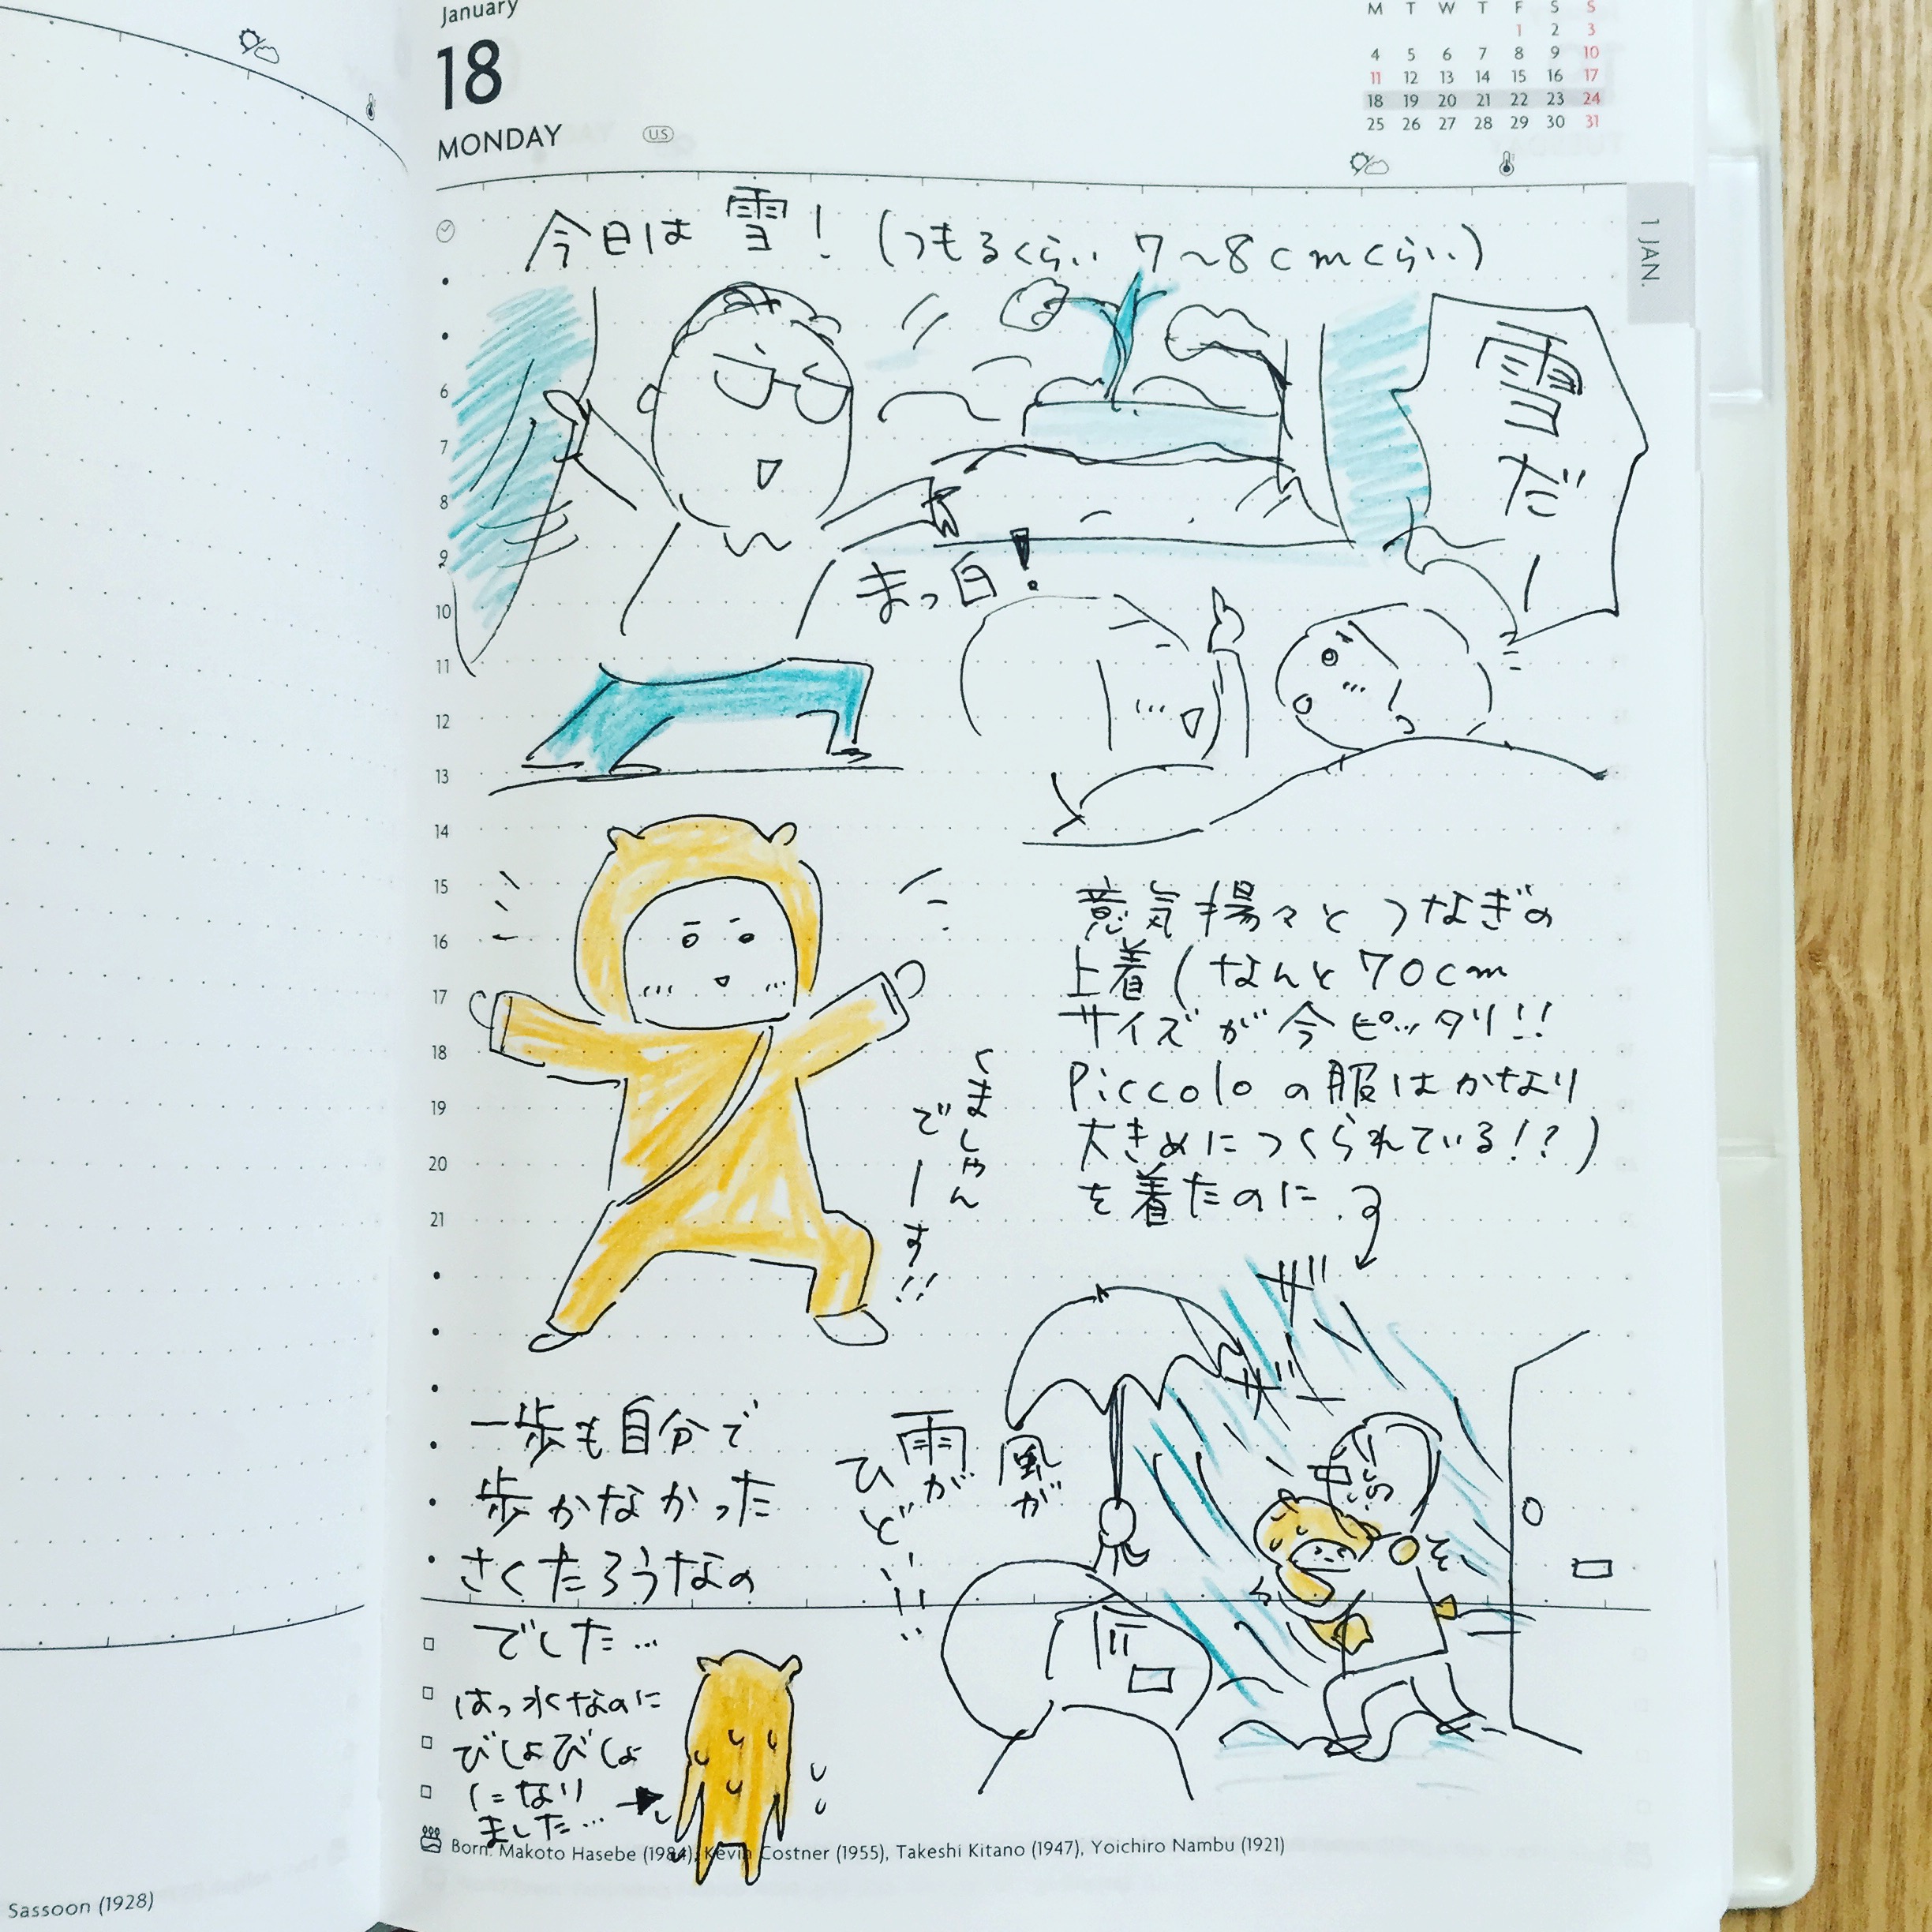 January
18
MONDAY
US
M T W T F S S
1 2 3
4 5 6 7 8 9 10
11 12 13 14 15 16 17
18 19 20 21 22 23 24
25 26 27 28 29 30 31
1 JAN.
今日は雪!(つもるくらい 7~8cmくらい)
雪だー
まっ白!
6
7
8
9
10
11
12
13
14
15
16
17
18
19
20
21
くましゃん
でーす!!
意気揚々とつなぎの
上着(なんと70cm
サイズが今ピッタリ!!
Piccoloの服はかなり
大きめにつくられている!?)
を着たのに
ザー
ザー
風が
雨が
ひどい!!
一歩も自分で
歩かなかった
さくたろうなの
でした…
はっ水なのに
びしょびしょ
になり
ました…
Born: Makoto Hasebe (1984), Kevin Costner (1955), Takeshi Kitano (1947), Yoichiro Nambu (1921)
Sassoon (1928)